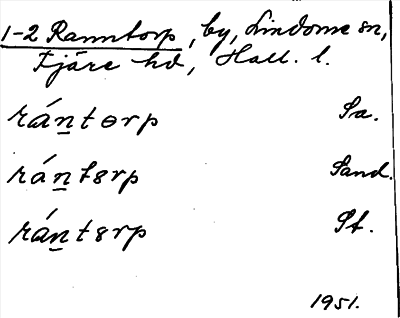 1-2 Ranntorp, by, Lindome sn,
Fjäre hd, Hall. l.
rántɵrp Sa.
rántɞrp Sand.
rántɞrp St.
1951.